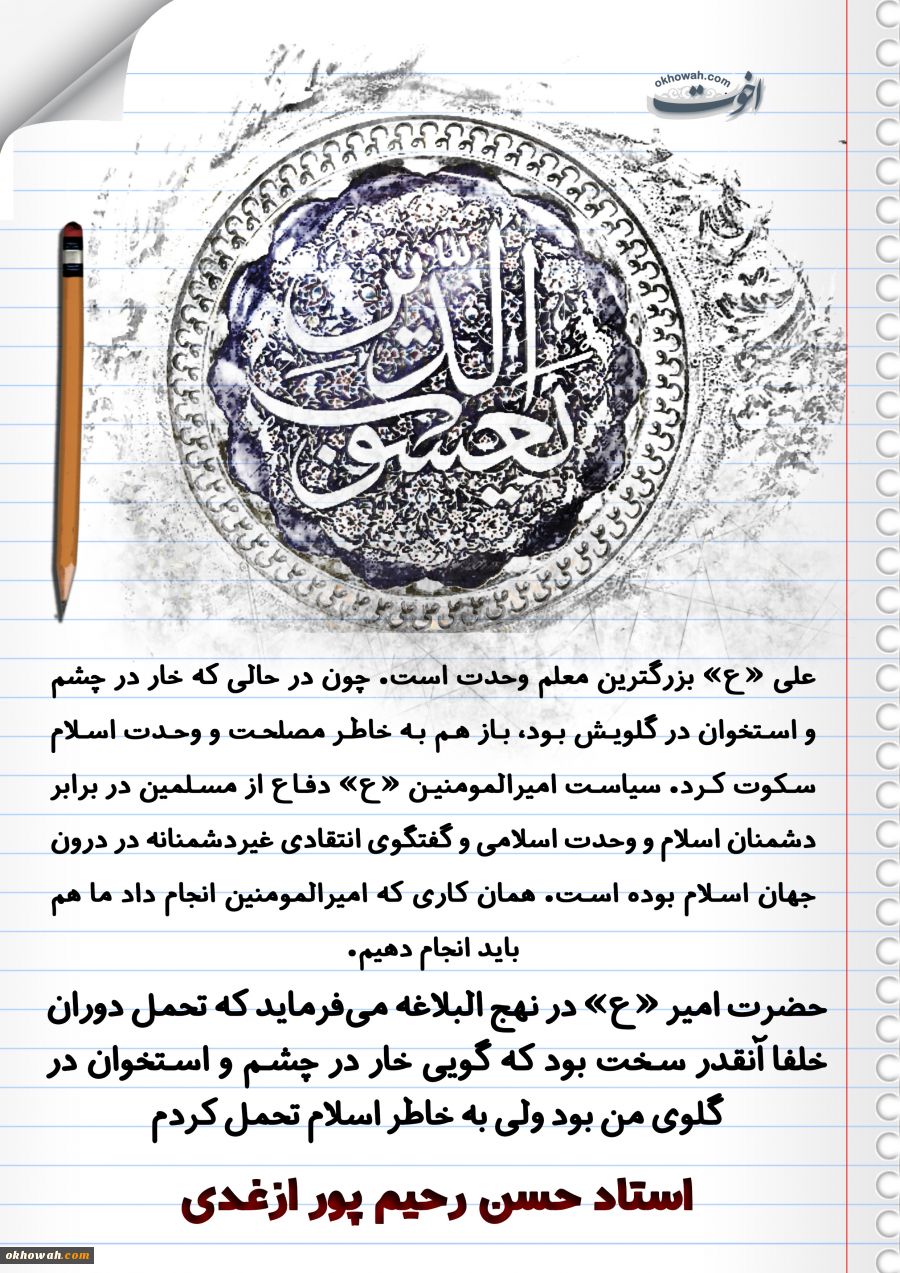 okhowah.com
اخوت
یعسوب الدین
علی «ع» بزرگترین معلم وحدت است. چون در حالی که خار در چشم
و استخوان در گلویش بود، باز هم به خاطر مصلحت و وحدت اسلام
سکوت کرد. سیاست امیرالمومنین «ع» دفاع از مسلمین در برابر
دشمنان اسلام و وحدت اسلامی و گفتگوی انتقادی غیردشمنانه در درون
جهان اسلام بوده است. همان کاری که امیرالمومنین انجام داد ما هم
باید انجام دهیم.
حضرت امیر «ع» در نهج البلاغه می‌فرماید که تحمل دوران
خلفا آنقدر سخت بود که گویی خار در چشم و استخوان در
گلوی من بود ولی به خاطر اسلام تحمل کردم
استاد حسن رحیم پور ازغدی
okhowah.com